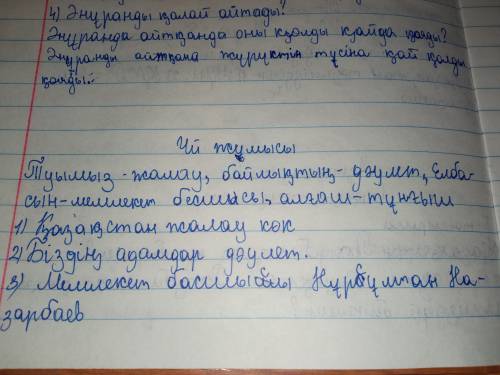 4) Әнұранды қалай айтады?
Әнұранда айтқанда оны ққолды қайда қояды?
Әнұранды айтқана жүруктің тұсіна қай қолды
қояды.
Үй жұмысы
Туымыз - жалау, байлықтың - дәулт, Елба-
сын - мемлекет басшысы, алғаш - тұнғыш
1) Қазақстан жалау көк
2) Біздің адамдар дәулет.
3) Мемлекет басшысы Нұрсұлтан На-
зарбаев